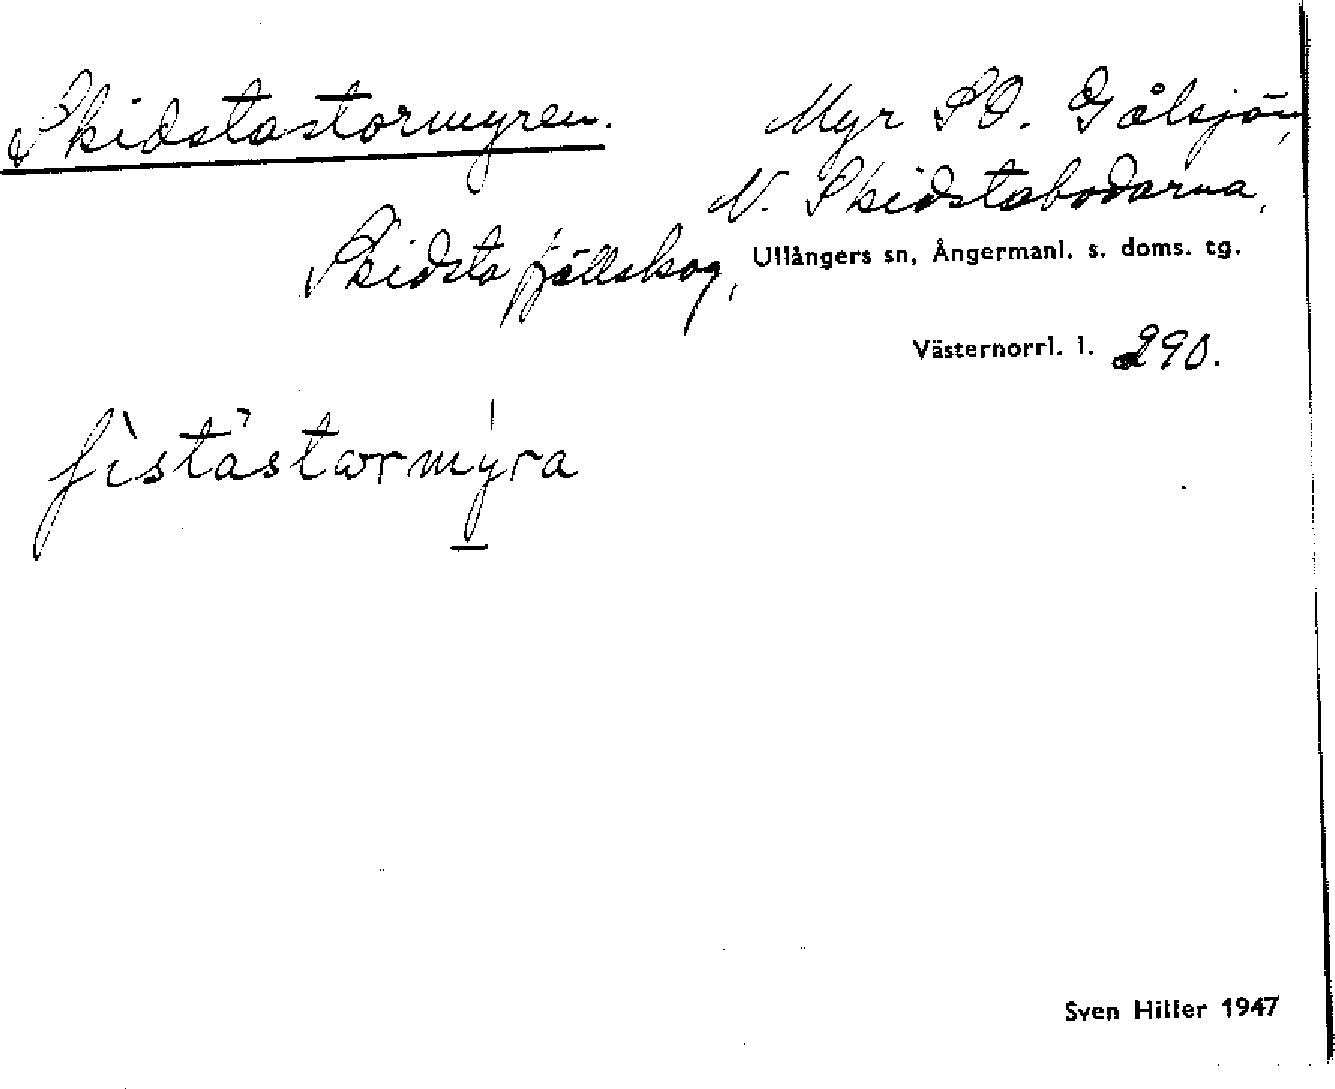 Skidstastormyren.
Myr SO. Gålsjön,
N. Skidstabodarna,
Skidsta fjällskog, Ullångers sn, Ångermanl. s. doms. tg.
Västernorrl. l. 290.
ʃìstàstormy̱ra
Sven Hiller 1947